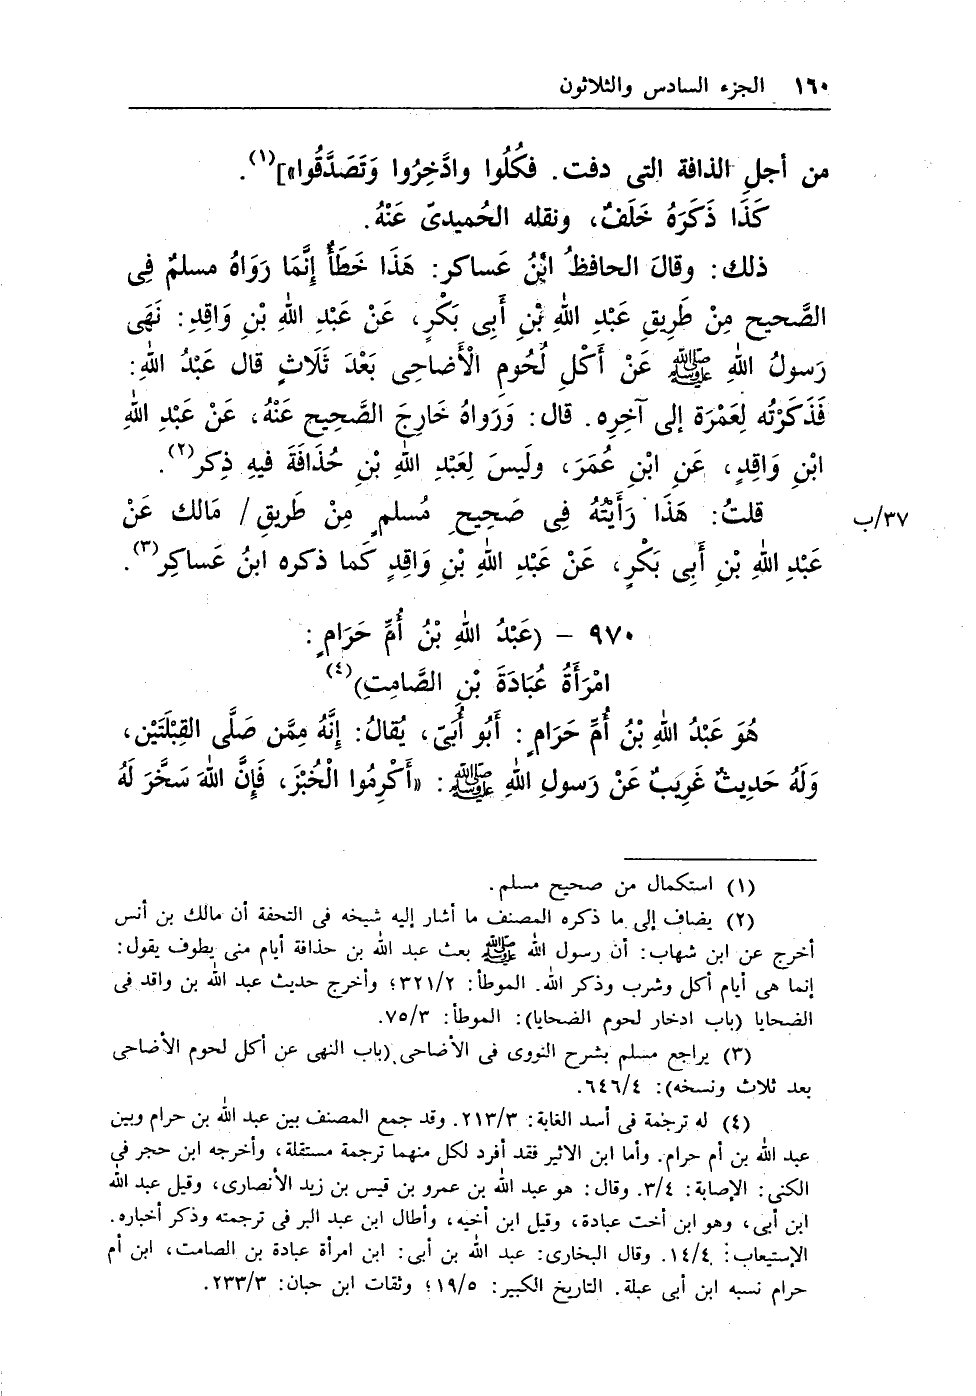 ١٦٠ الجزء السادس والثلاثون
من أجلِ الذافة التى دفت. فكُلُوا وادَّخِرُوا وَتَصَدَّقُوا»](١).
كَذَا ذَكَرَهُ خَلَفٌ، ونقله الحُميدىّ عَنْهُ.
ذلك: وقالَ الحافظُ ابْنُ عَساكر: هَذَا خَطَأٌ إِنَّمَا رَوَاهُ مسلمٌ فِى
الصَّحيح مِنْ طَرِيقِ عَبْدِ اللهِ بْنِ أَبِى بَكْرٍ، عَنْ عَبْدِ اللهِ بْنِ وَاقِدِ: نَهَى
رَسولُ اللهِ ﷺ عَنْ أَكْلِ لُحُومِ الْأَضاحِى بَعْدَ ثَلَاثٍ قال عَبْدُ اللهِ:
فَذَكَرْتُه لِعَمْرَة إلى آخِرِه. قال: وَرَواهُ خَارِجَ الصَّحيح عَنْهُ، عَنْ عَبْدِ اللهِ
ابْنِ وَاقِدٍ، عَنِ ابْنِ عُمَرَ، ولَيسَ لِعَبْدِ اللهِ بْنِ حُذَافَةَ فيهِ ذِكر(٢).
قلتُ: هَذَا رَأَيْتُهُ فِى صَحِيحِ مُسلمٍ مِنْ طَريقِ/ مَالك عَنْ
٣٧/ب
عَبْدِ اللهِ بْنِ أَبِى بَكْرٍ، عَنْ عَبْدِ اللهِ بْنِ وَاقِدٍ كَما ذكره ابنُ عَساكِر(٣).
٩٧٠ – (عَبْدُ اللهِ بْنُ أُمِّ حَرَامٍ:
امْرَأَةُ عُبَادَةَ بْنِ الصَّامتِ)(٤)
هُوَ عَبْدُ اللهِ بْنُ أُمِّ حَرَامٍ: أَبُو أُبَىّ، يُقالُ: إِنَّهُ مِمَّن صَلَّى القِبْلَتَيْن،
وَلَهُ حَديثٌ غَرِيبٌ عَنْ رَسولِ اللهِ ﷺ: «أَكْرِمُوا الْخُبْزَ، فَإِنَّ اللهَ سَخَّرَ لَهُ
(١) استكمال من صحيح مسلم.
(٢) يضاف إلى ما ذكره المصنف ما أشار إليه شيخه فى التحفة أن مالك بن أنس
أخرج عن ابن شهاب: أن رسول الله ﷺ بعث عبد الله بن حذافة أيام منى يطوف يقول:
إنما هى أيام أكل وشرب وذكر الله. الموطأ: ٣٢١/٢؛ وأخرج حديث عبد الله بن واقد فى
الضحايا (باب ادخار لحوم الضحايا): الموطأ: ٧٥/٣.
(٣) يراجع مسلم بشرح النووى فى الأضاحى (باب النهى عن أكل لحوم الأضاحى
بعد ثلاث ونسخه): ٦٤٦/٤.
(٤) له ترجمة فى أسد الغابة: ٢١٣/٣. وقد جمع المصنف بين عبد الله بن حرام وبين
عبد الله بن أم حرام. وأما ابن الاثير فقد أفرد لكل منهما ترجمة مستقلة، وأخرجه ابن حجر فى
الكنى: الإصابة: ٣/٤. وقال: هو عبد الله بن عمرو بن قيس بن زيد الأنصارى، وقيل عبد الله
ابن أبى، وهو ابن أخت عبادة، وقيل ابن أخيه، وأطال ابن عبد البر فى ترجمته وذكر أخباره.
الإستيعاب: ١٤/٤. وقال البخارى: عبد الله بن أبى: ابن امرأة عبادة بن الصامت، ابن أم
حرام نسبه ابن أبى عبلة. التاريخ الكبير: ١٩/٥؛ وثقات ابن حبان: ٢٣٣/٣.